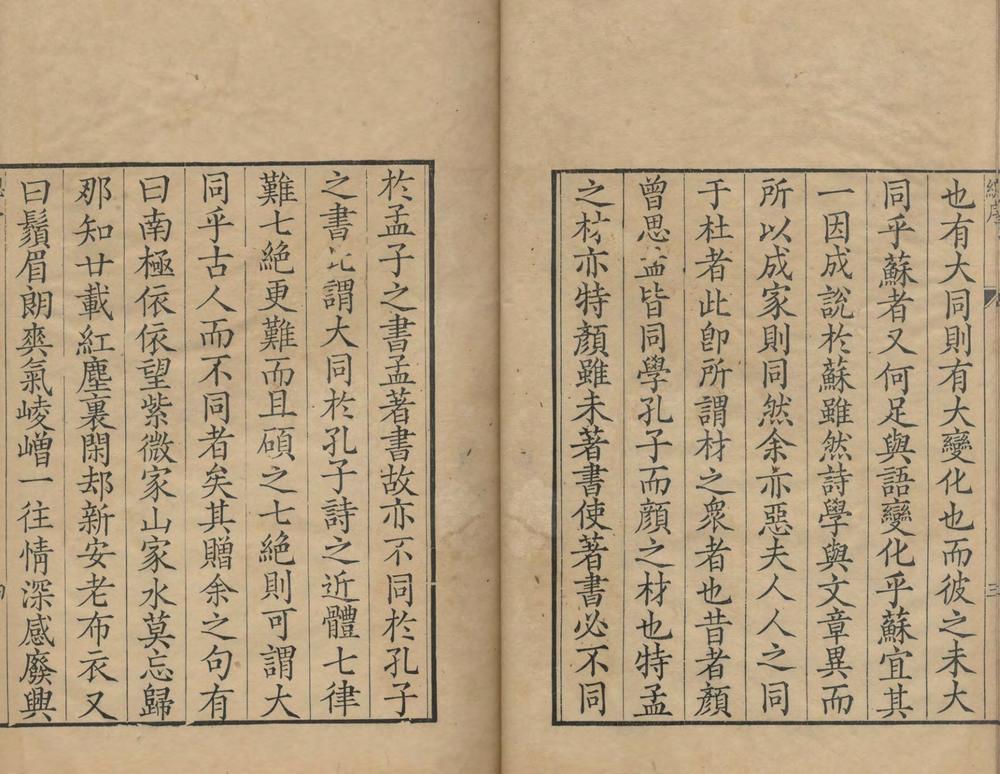 也有大同則有大變化也而彼之未大
同乎蘇者又何足與語變化乎蘇宜其
一因成說於蘇雖然詩學與文章異而
所以成家則同然余亦惡夫人人之同
于杜者此卽所謂材之衆者也昔者顏
曾思孟皆同學孔子而顏之材也特孟
之材亦特顏雖未著書使著書必不同
於孟子之書孟著書故亦不同於孔子
之書此謂大同於孔子詩之近體七律
難七絕更難而且碩之七絕則可謂大
同乎古人而不同者矣其贈余之句有
曰南極依依望紫微家山家水莫忘歸
那知廿載紅塵裏閑却新安老布衣又
曰鬚眉朗爽氣崚嶒一往情深感廢興